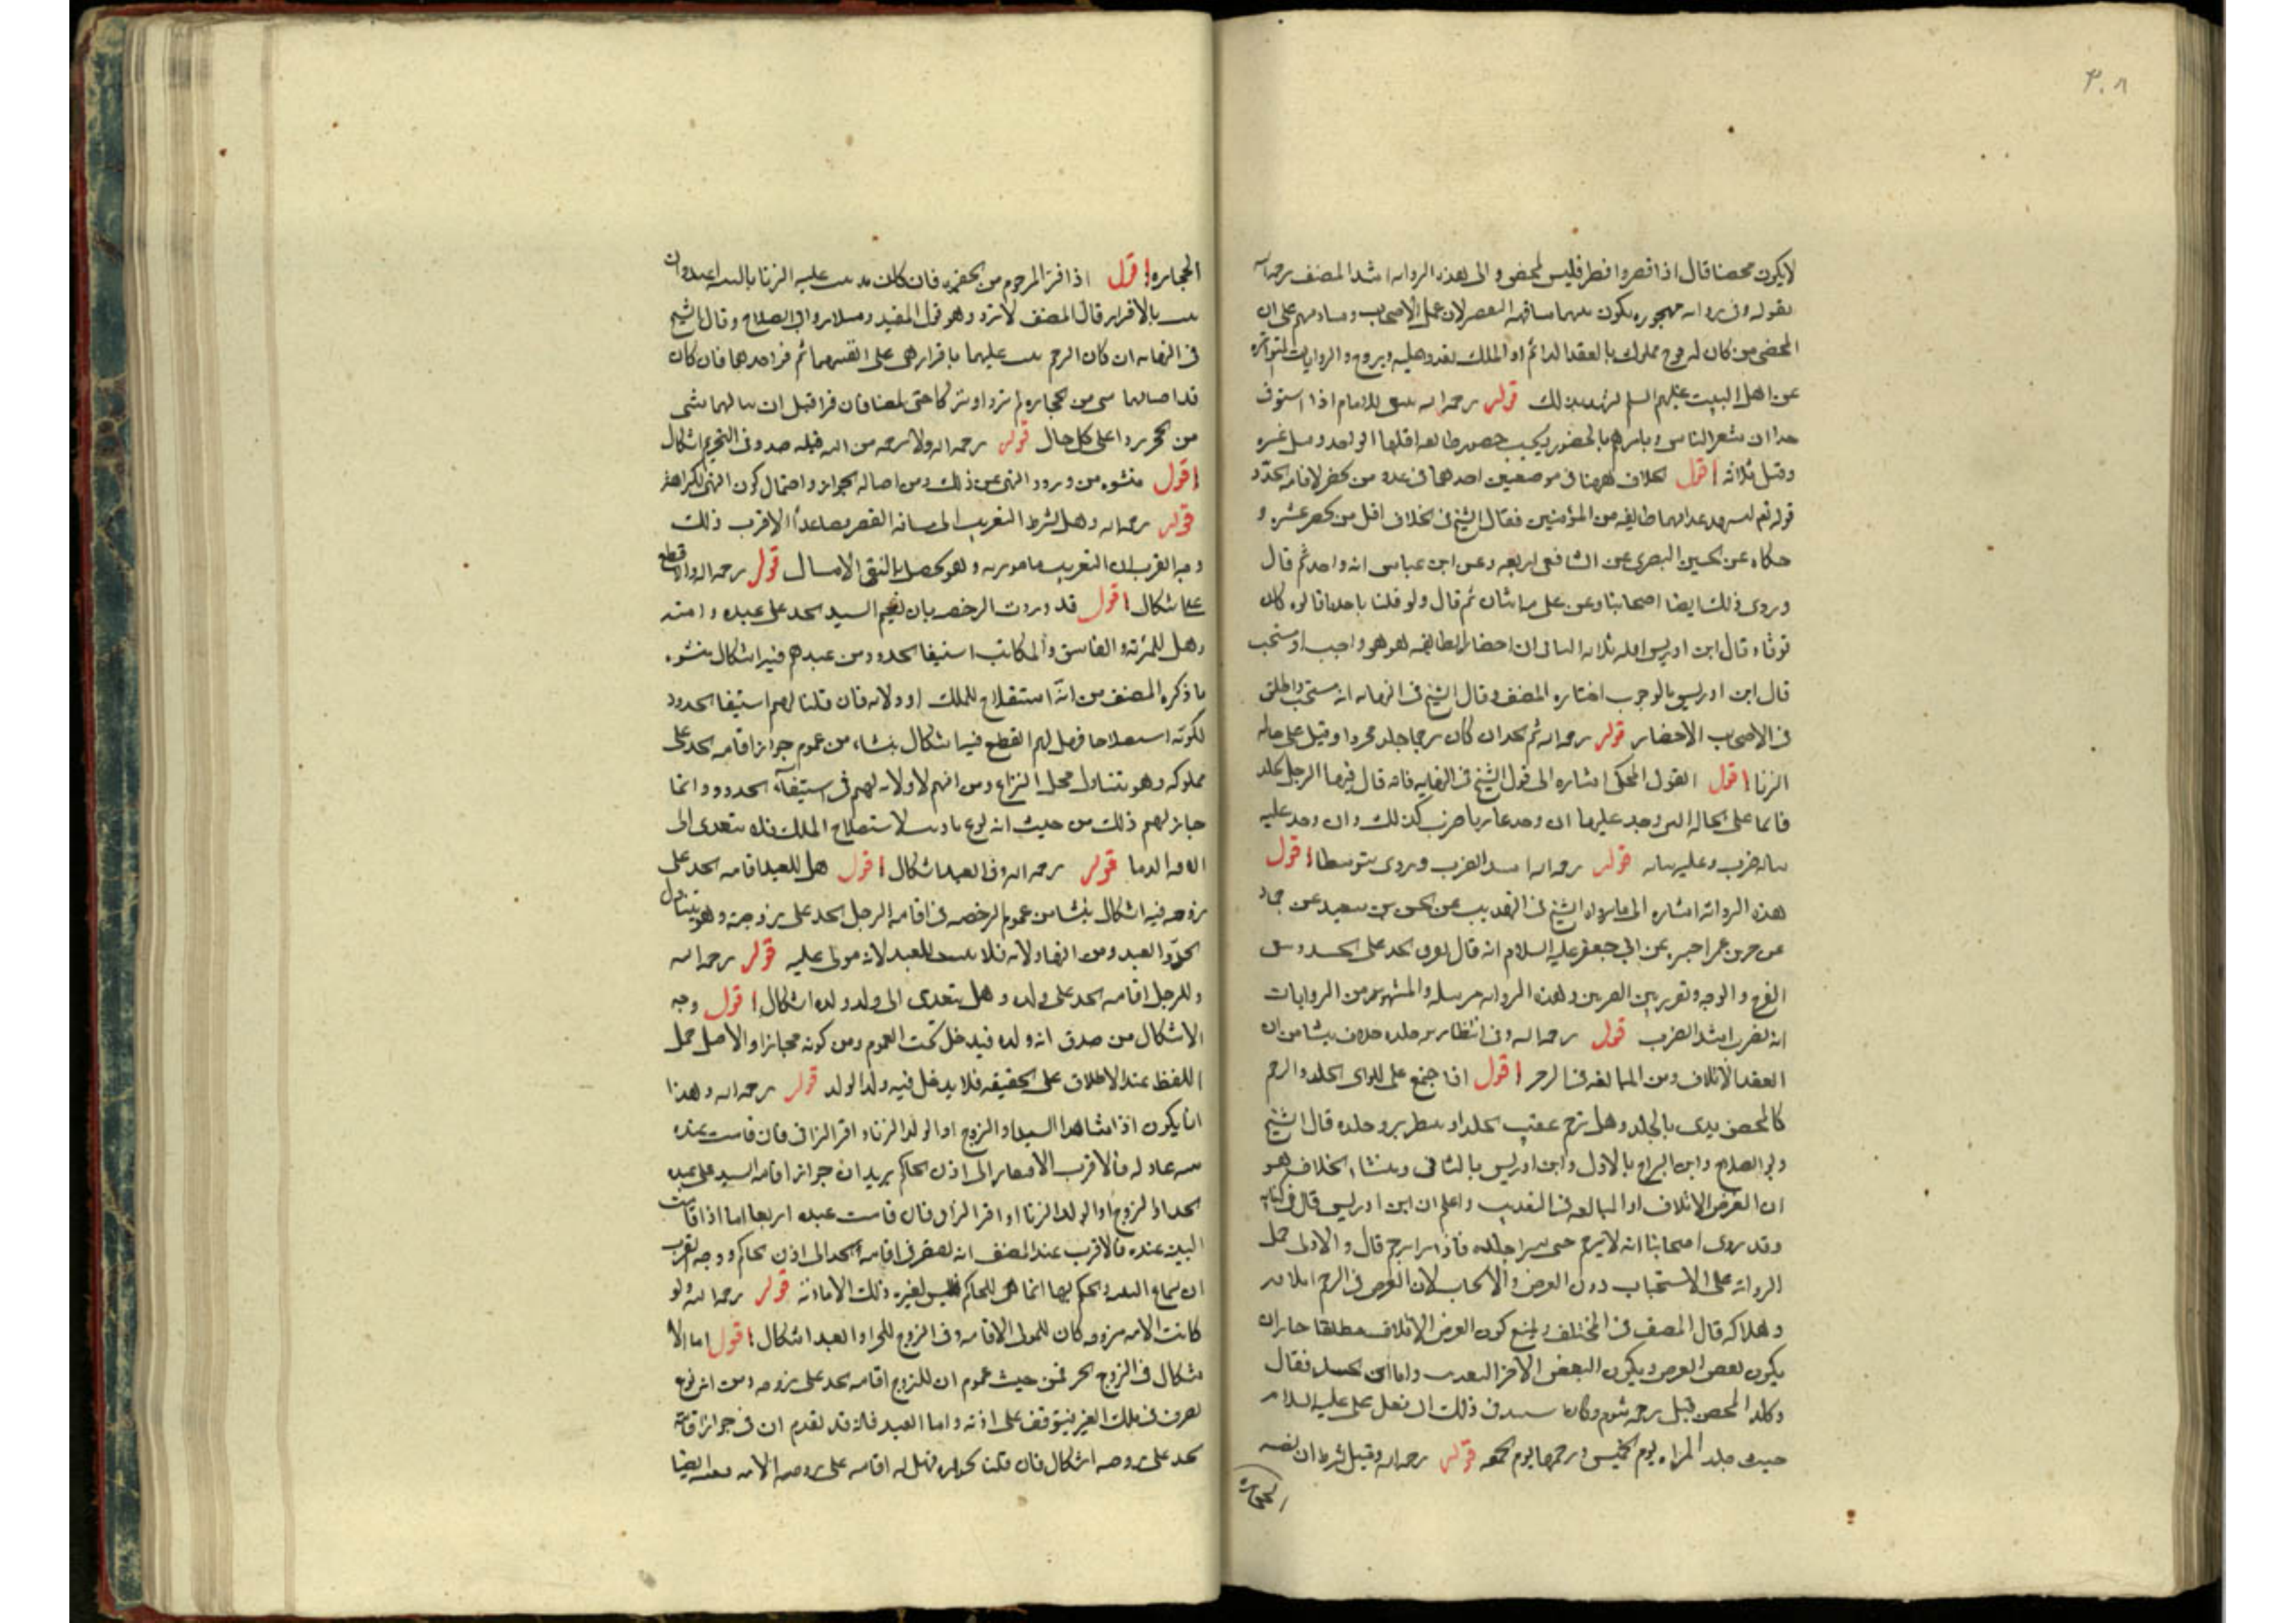 ٣٠٨
لا يكون محصنا قال اذا قصر وافطر فليس بمحصن والى هذه الرواية اشار المصنف رحمه الله
بقوله وفى رواية مهجورة يكون بينهما مسافة القصر لان عمل الاصحاب
المحصن من كان له فرج مملوك بالعقد الدائم او الملك يغدو عليه ويروح والروايات المتواترة
عن اهل البيت عليهم السلم قوله رحمه الله ينبغى للامام اذا استوفى
حدا ان يشعر الناس ويامرهم بالحضور ويجب حضور طائفة اقلها الواحد وقيل عشرة
وقيل ثلاثة اقول الخلاف ههنا فى موضعين احدهما فى عدد من يحضر لاقامة الحد
قوله تع وليشهد عذابهما طائفة من المؤمنين فقال الشيخ فى الخلاف اقل من يحضر عشرة و
حكاه عن الحسن البصرى عن الشافعى اربعة وعن ابن عباس انه واحد ثم قال
وروى ذلك ايضا اصحابنا وعن اثنان ثم قال ولو قلنا باحد ما قالوه كان
قويا وقال ابن ادريس اقله ثلاثة الثانى ان احضار الطائفة هل هو واجب او مستحب
قال ابن ادريس بالوجوب اختاره المصنف وقال الشيخ فى النهاية انه مستحب
الاحضار قوله رحمه الله ثم الحد ان كان جلد مجردا وقيل على حالة
الزنا اقول القول المحكى اشارة الى قول الشيخ فى النهاية فانه قال فيها الرجل يجلد
قائما على الحالة التى وجد عليها ان وجد عاريا ضرب كذلك وان وجد عليه
ثيابه ضرب وعليه ثيابه قوله رحمه الله اشد الضرب وروى متوسطا اقول
هذه الرواية اشارة الى ما رواه الشيخ فى التهذيب عن الحسين بن سعيد عن حماد
عن حريز عمن اخبره عن ابى جعفر عليه السلام انه قال يفرق الحد على الجسد
الفرج والوجه ويضرب بين الضربين وهذه الرواية مرسلة والمشهور من الروايات
انه يضرب اشد الضرب قوله رحمه الله وفى انتظار برء جلده خلاف ينشا من ان
القصد الاتلاف ومن المبالغة فى الزجر اقول اذا جمع على الزانى الجلد والرجم
كالمحصن بدى بالجلد وهل يرجم عقيب الجلد او ينتظر برء جلده قال الشيخ
وابو الصلاح وابن البراج بالاول وابن ادريس بالثانى ومنشاء الخلاف هو
ان الغرض الاتلاف او المبالغة فى التعذيب واعلم ان ابن ادريس قال فى كتابه
وقد روى اصحابنا انه لا يرجم حتى يبرا جلده فاذا برا رجم قال والاولى حمل
الرواية على الاستحباب دون الفرض والايجاب لان الغرض فى الرجم اتلافه
وهلاكه قال المصنف فى المختلف ويمنع كون الغرض الاتلاف مطلقا جاز ان
يكون بعض الغرض ويكون البعض الاخر التعذيب واما ابن الجنيد فقال
وجلد المحصن قبل رجمه بيوم فى ذلك ان فعل على عليه السلام
حيث جلد المراة يوم الخميس ورجمها يوم الجمعة قوله رحمه الله وقيل يشترط ان تصيبه
الحجارة
الحجارة اقول اذا فر المرجوم من الحفيرة فان كان قد ثبت عليه الزنا بالبينة اعيد وان
ثبت بالاقرار قال المصنف لا يرد وهو قول المفيد وسلار وابى الصلاح وقال الشيخ
فى النهاية ان كان الرجم ثبت عليهما باقرارهم على انفسهما ثم فر احدهما فان كان
قد اصابهما شى من الحجارة لم يرد او يتركا حتى يمضيا فان فرا قبل ان ينالهما شى
من الحجر ردا على كل حال قوله رحمه الله ولا يرجمه من لله قبله حد وفى التحريم اشكال
اقول منشوه من ورود النهى عن ذلك ومن اصالة الجواز واحتمال كون النهى للكراهة
قوله رحمه الله وهل يشترط التغريب الى مسافة القصر فصاعدا الاقرب ذلك
وجه القرب ان التغريب مامور به وهو قوله رحمه الله والاقطع
على اشكال اقول قد وردت الرخصة بان يقيم السيد الحد على عبده وامته
وهل للمراة والفاسق والمكاتب استيفا الحدود من عبدهم فيه اشكال ينشوء
ما ذكره المصنف من انه استصلاح للملك او ولاية فان قلنا لهم استيفا الحدود
لكونه استصلاحا فهل لهم القطع فيه اشكال ينشاء من عموم جواز اقامة الحد على
مملوكه وهو يتناول محل النزاع ومن انهم لا ولاية لهم فى استيفاء الحدود وانما
جاز لهم ذلك من حيث انه نوع تاديب لاستصلاح الملك فلا يتعدى الى
اراقة الدما قوله رحمه الله وفى العبد اشكال اقول هل للعبد اقامة الحد على
زوجته فيه اشكال ينشا من عموم الرخصة فى اقامة الرجل الحد على زوجته وهو يتناول
الحر والعبد ومن انها ولاية فلا يثبت للعبد لانه مولى عليه قوله رحمه الله
وللرجل اقامة الحد على ولده وهل يتعدى الى ولد ولده اشكال اقول وجه
الاشكال من صدق انه ولده فيدخل تحت العموم ومن كونه مجازا والاصل حمل
اللفظ عند الاطلاق على الحقيقة فلا يدخل فيه ولد الولد قوله رحمه الله وهذا
انما يكون اذا شاهد السيد او الزوج او الوالد الزنا او اقر الزانى فان قامت عنده
بينة عادلة فالاقرب الافتقار الى اذن الحاكم يريد ان جواز اقامة السيد على عبده
الحد او الزوج او الوالد الزنا او اقر الزانى فان قامت عنده اما اذا قامت
البينة عنده فالاقرب عند المصنف انه يفتقر فى اقامة الحد الى اذن الحاكم ووجه القرب
ان سماع البينة والحكم بها انما هى للحاكم فليس لغيره ذلك الا باذنه قوله رحمه الله ولو
كانت الامة مزوجة كان للمولى الاقامة وفى الزوج الحر او العبد اشكال اقول اما الا
شكال فى الزوج الحر فمن حيث عموم ان للزوج اقامة الحد على زوجته ومن انه نوع
تصرف فى ملك الغير فيتوقف على اذنه واما العبد فلانه قد تقدم ان فى جواز اقامة
الحد على زوجته اشكال فان قلنا بجوازه فهل له اقامته على زوجته الامة فيه ايضا